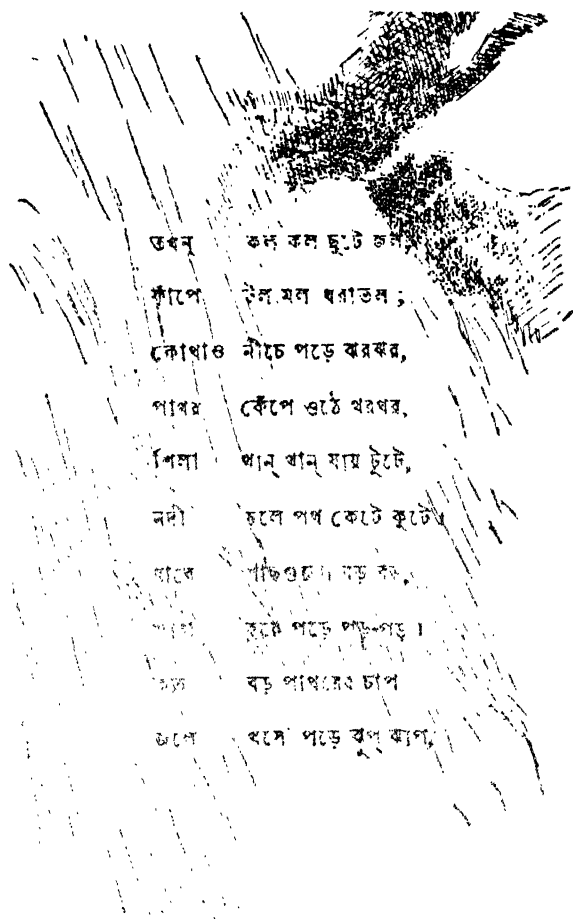 তখন্ কল কল ছুটে জল,
কাঁপে টল মল ধরাতল ;
কোথাও নীচে পড়ে ঝরঝর,
পাথর কেঁপে ওঠে থরথর,
শিলা খান্ খান্ যায় টুটে,
নদী চলে পথ কেটে কুটে।
ধারে গাছগুলো বড় বড়,
হেলে পড়ে পড়-পড়।
কত বড় পাথরের চাপ
জলে খসে পড়ে ঝুপ্ ঝাপ,